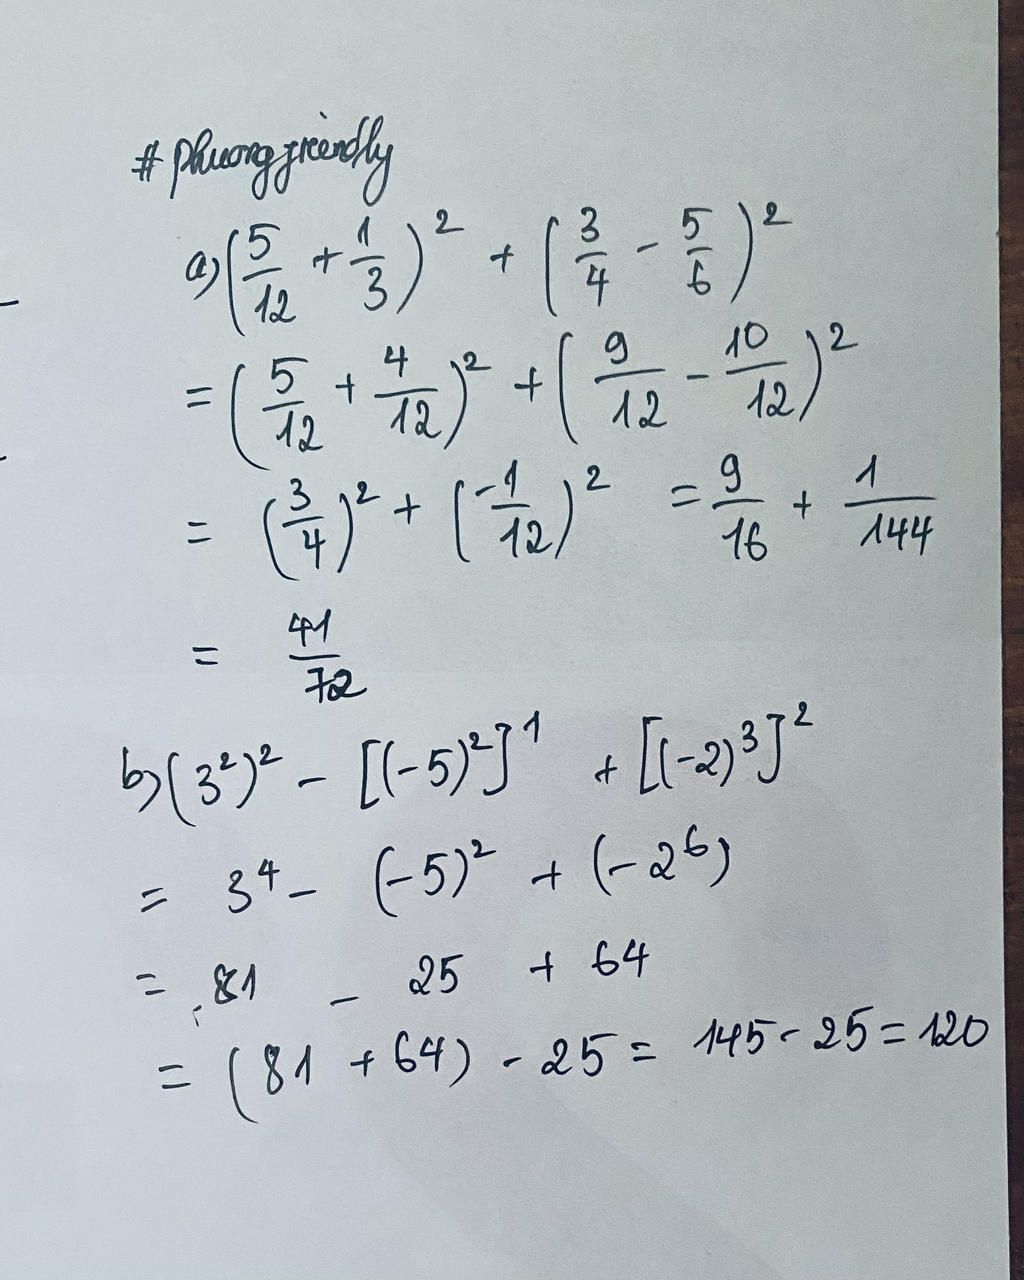 # phuongfriendly
a) (5/12 + 1/3)² + (3/4 - 5/6)²
= (5/12 + 4/12)² + (9/12 - 10/12)²
= (3/4)² + (-1/12)² = 9/16 + 1/144
= 41/72
b) (3²)² - [(-5)²]¹ + [(-2)³]²
= 3⁴ - (-5)² + (-2⁶)
= 81 - 25 + 64
= (81 + 64) - 25 = 145 - 25 = 120